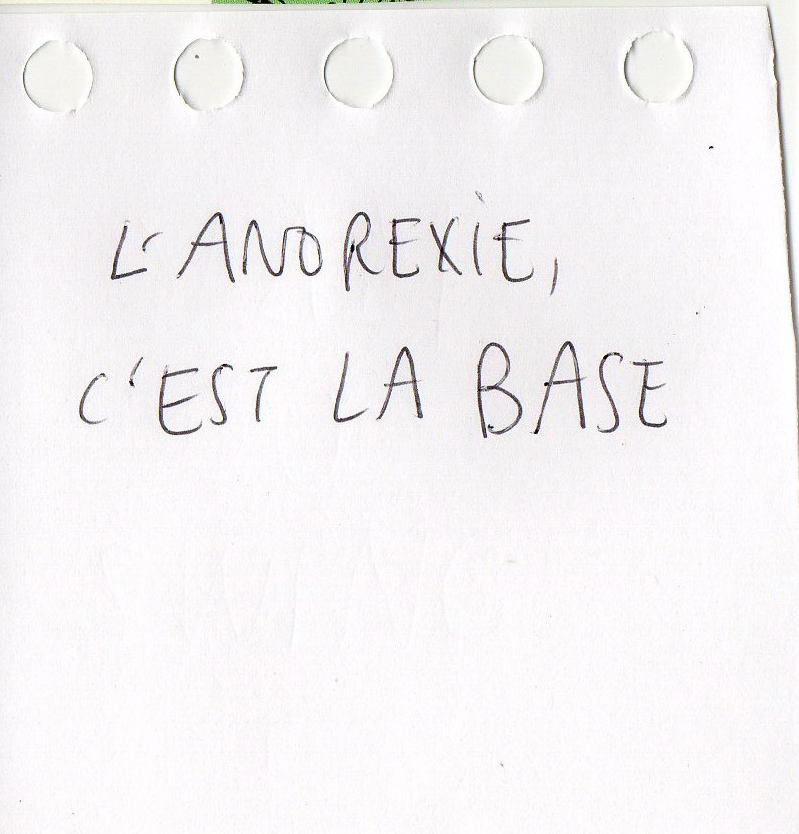 L'ANOREXIE,
C'EST LA BASE